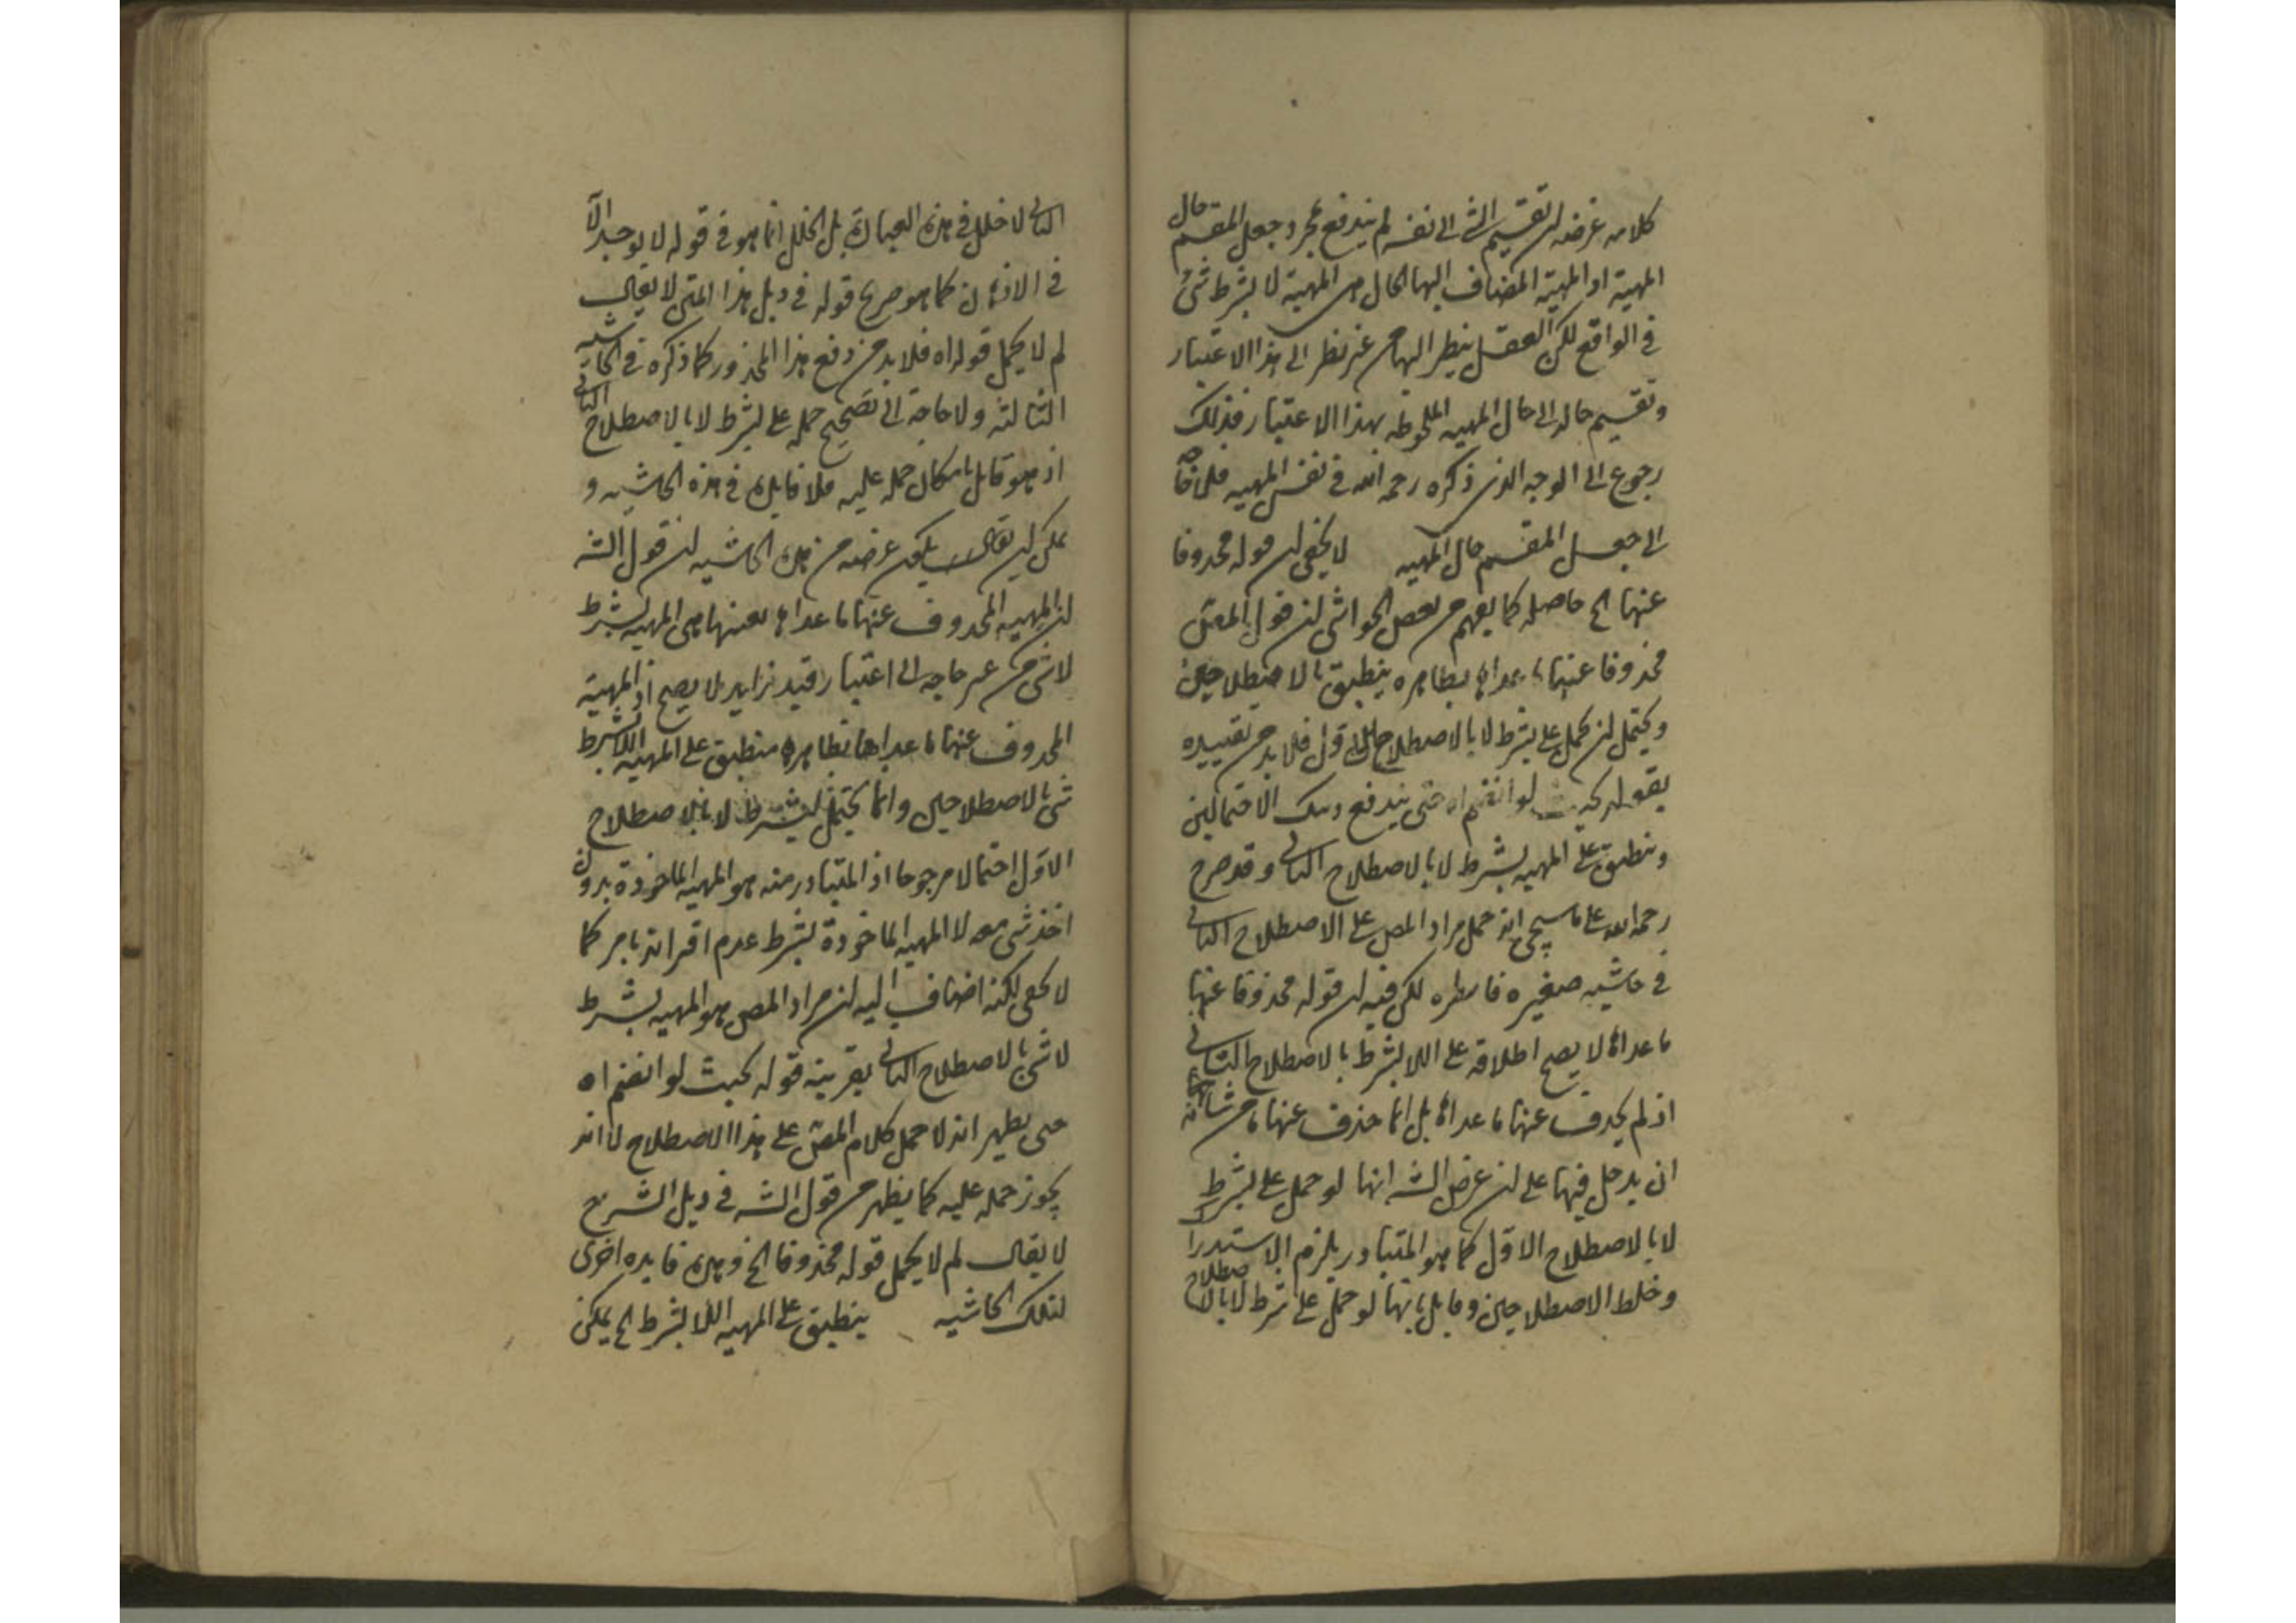 كلامه غرضه ان تقسيم الشئ الى نفسه لم يندفع بمجرد جعل المقسم حال
المهية اذ المهية المضاف اليها الحال هى المهية لا بشرط شئ
فى الواقع لكن العقل ينظر اليها من غير نظر الى هذا الاعتبار
وتقسيم حاله الى حال المهيه الملحوظه بهذا الاعتبار فذلك
رجوع الى الوجه الذى ذكره رحمه الله فى نفس المهيه فلا حاجة
الى جعل المقسم حال المهيه لا يخفى ان قوله محذوفا
عنها الخ حاصله كما يفهم من بعض الحواشى ان قول المص
محذوفا عنها ما عداها بظاهره ينطبق بالاصطلاحين
ويحتمل ان يحمل على بشرط لا بالاصطلاح الاول فلا بد من تقييده
بقوله بحيث لو انضم اه حتى يندفع الاحتمالين
وينطبق على المهيه بشرط لا بالاصطلاح الثانى وقد صرح
رحمه الله على ما سيجئ انه حمل مراد المص على الاصطلاح الثانى
فى حاشيه صغيره لكن فيه ان قوله محذوفا عنها
ما عداها لا يصح اطلاقه على اللا بشرط بالاصطلاح الثانى
اذ لم يحذف عنها ما عداها بل انما حذف عنها ما من شانه
ان يدخل فيها على ان غرض الشه انها لو حمل على بشرط
لا بالاصطلاح الاول كما هو المتبادر يلزم الاستدرا
وخلط الاصطلاحين بانها لو حمل على شرط لا بالاصطلاح
الثانى لا خلل فى هذه العبارة بل الخلل انما هو فى قوله لا يوجد الا
فى الاذهان كما هو صريح قوله فى ذيل هذا المتن لا يقال
لم لا يحمل قوله اه فلا بد من دفع هذا المحذور كما ذكره فى الحاشيه
الثالثه ولا حاجة الى تصحيح حمله على بشرط لا بالاصطلاح الثانى
اذ هو قابل بامكان حمله عليه فلا فايدة فى هذه الحاشيه و
يمكن ان يقال يكون غرضه من هذه الحاشيه ان قول الشه
ان المهيه المحذوف عنها ما عداها بعينها هى المهيه بشرط
لا شئ من غير حاجه الى اعتبار قيد زايد لا يصح اذ المهية
المحذوف عنها ما عداها بظاهرها منطبق على المهيه اللابشرط
شئ بالاصطلاحين وانما يحتمل بشرط لا بالاصطلاح
الاول احتمالا مرجوحا اذ المتبادر منه هو المهيه الماخوذة بدون
اخذ شئ معه لا المهيه الماخوذة بشرط عدم اقترانه بامر كما
لا يخفى لكنه اضاف اليه ان مراد المص هو المهيه بشرط
لا شئ بالاصطلاح الثانى بقرينه قوله بحيث لو انضم اه
حتى يظهر انه لا حمل كلام المص على هذا الاصطلاح لا انه
يجوز حمله عليه كما يظهر من قول الشه فى ذيل الشرح
لا يقال لم لا يحمل قوله محذوفا الخ وهذه فايده اخرى
لتلك الحاشيه ينطبق على المهيه اللا بشرط الخ يمكن